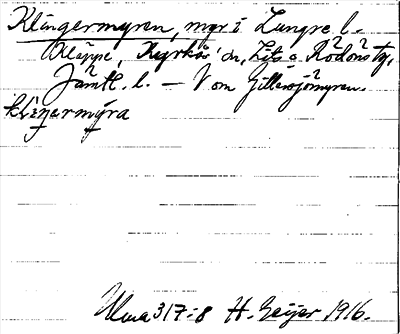 Klingermyren, myr i Lungre l.
Kläppe, Kyrkås sn, Lits o. Rödöns tg,
Jämtl. l. — V om Gillersjömyren.
klìŋarmýra
Ulma 317:8 H. Geijer 1916.